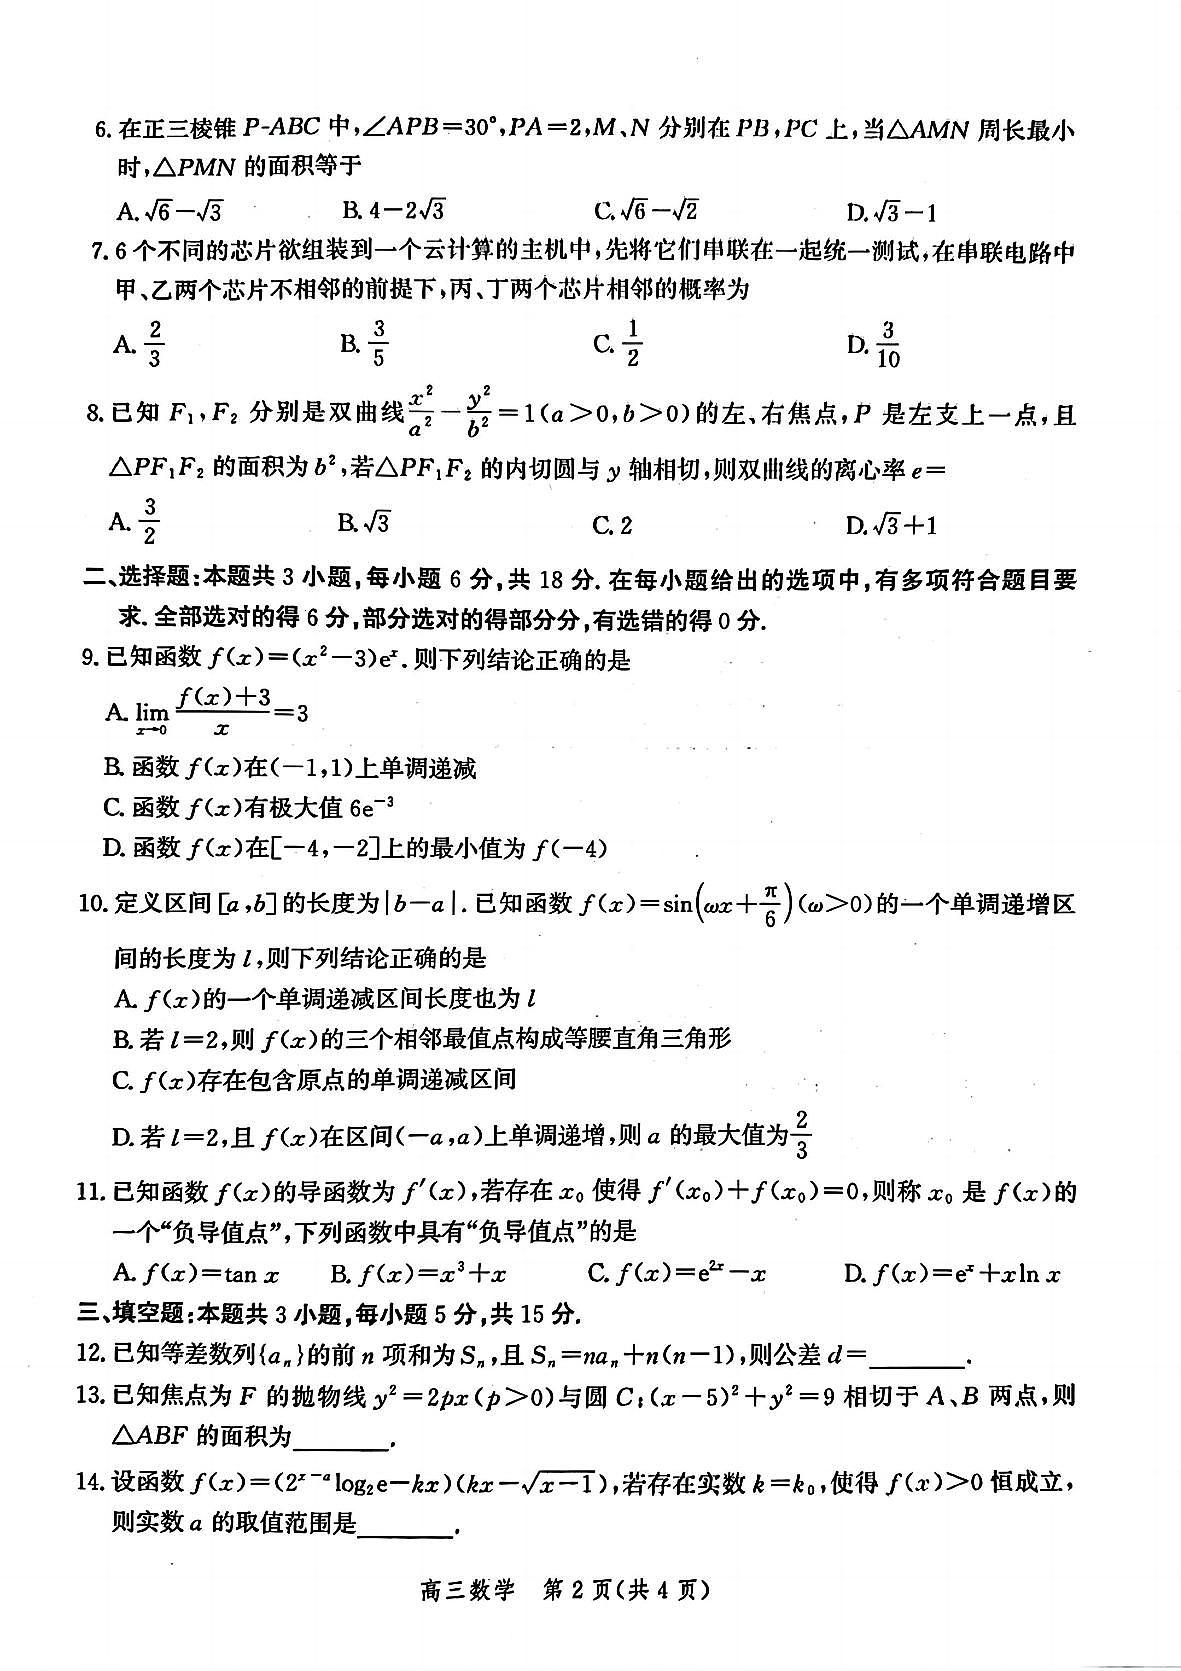 6. 在正三棱锥 P-ABC 中,∠APB=30°,PA=2,M、N 分别在 PB,PC 上,当△AMN 周长最小
时,△PMN 的面积等于
A. √6-√3 B. 4-2√3 C. √6-√2 D. √3-1
7. 6 个不同的芯片欲组装到一个云计算的主机中,先将它们串联在一起统一测试,在串联电路中
甲、乙两个芯片不相邻的前提下,丙、丁两个芯片相邻的概率为
A. 2/3 B. 3/5 C. 1/2 D. 3/10
8. 已知 F₁,F₂ 分别是双曲线 x²/a² - y²/b² =1(a>0,b>0)的左、右焦点,P 是左支上一点,且
△PF₁F₂ 的面积为 b²,若△PF₁F₂ 的内切圆与 y 轴相切,则双曲线的离心率 e=
A. 3/2 B. √3 C. 2 D. √3+1
二、选择题:本题共 3 小题,每小题 6 分,共 18 分. 在每小题给出的选项中,有多项符合题目要
求. 全部选对的得 6 分,部分选对的得部分分,有选错的得 0 分.
9. 已知函数 f(x)=(x²-3)eˣ. 则下列结论正确的是
A. lim(x→0) (f(x)+3)/x =3
B. 函数 f(x)在(-1,1)上单调递减
C. 函数 f(x)有极大值 6e⁻³
D. 函数 f(x)在[-4,-2]上的最小值为 f(-4)
10. 定义区间[a,b]的长度为|b-a|. 已知函数 f(x)=sin(ωx+π/6)(ω>0)的一个单调递增区
间的长度为 l,则下列结论正确的是
A. f(x)的一个单调递减区间长度也为 l
B. 若 l=2,则 f(x)的三个相邻最值点构成等腰直角三角形
C. f(x)存在包含原点的单调递减区间
D. 若 l=2,且 f(x)在区间(-a,a)上单调递增,则 a 的最大值为 2/3
11. 已知函数 f(x)的导函数为 f′(x),若存在 x₀ 使得 f′(x₀)+f(x₀)=0,则称 x₀ 是 f(x)的
一个“负导值点”,下列函数中具有“负导值点”的是
A. f(x)=tan x B. f(x)=x³+x C. f(x)=e²ˣ-x D. f(x)=eˣ+xln x
三、填空题:本题共 3 小题,每小题 5 分,共 15 分.
12. 已知等差数列{aₙ}的前 n 项和为 Sₙ,且 Sₙ=naₙ+n(n-1),则公差 d=________.
13. 已知焦点为 F 的抛物线 y²=2px(p>0)与圆 C:(x-5)²+y²=9 相切于 A、B 两点,则
△ABF 的面积为________.
14. 设函数 f(x)=(2ˣ⁻ᵃlog₂e-kx)(kx-√(x-1)),若存在实数 k=k₀,使得 f(x)>0 恒成立,
则实数 a 的取值范围是________.
高三数学 第 2 页(共 4 页)